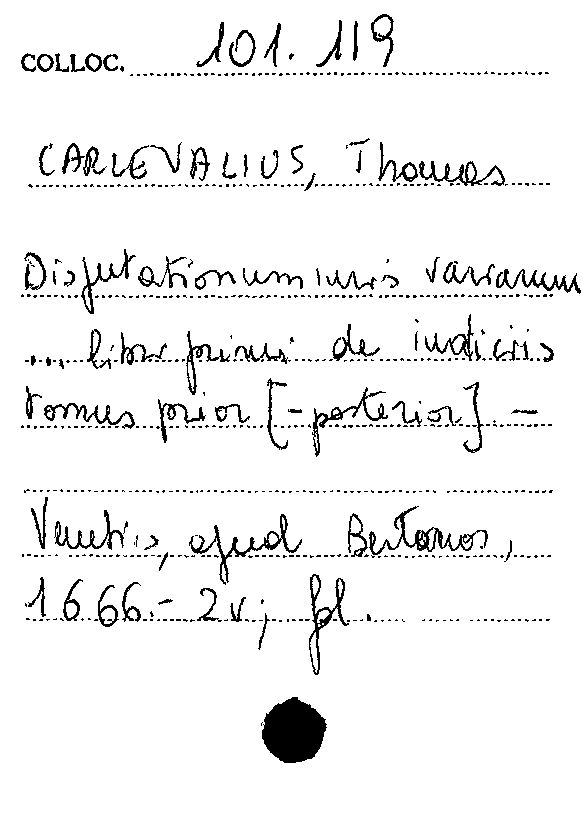 COLLOC. 101.119
CARLEVALIUS, Thomas
Disputationum iuris variarum
... libri primi de iudiciis
tomus prior [-posterior] -
Venetiis, apud Bertanos,
1666.- 2 v; fol.